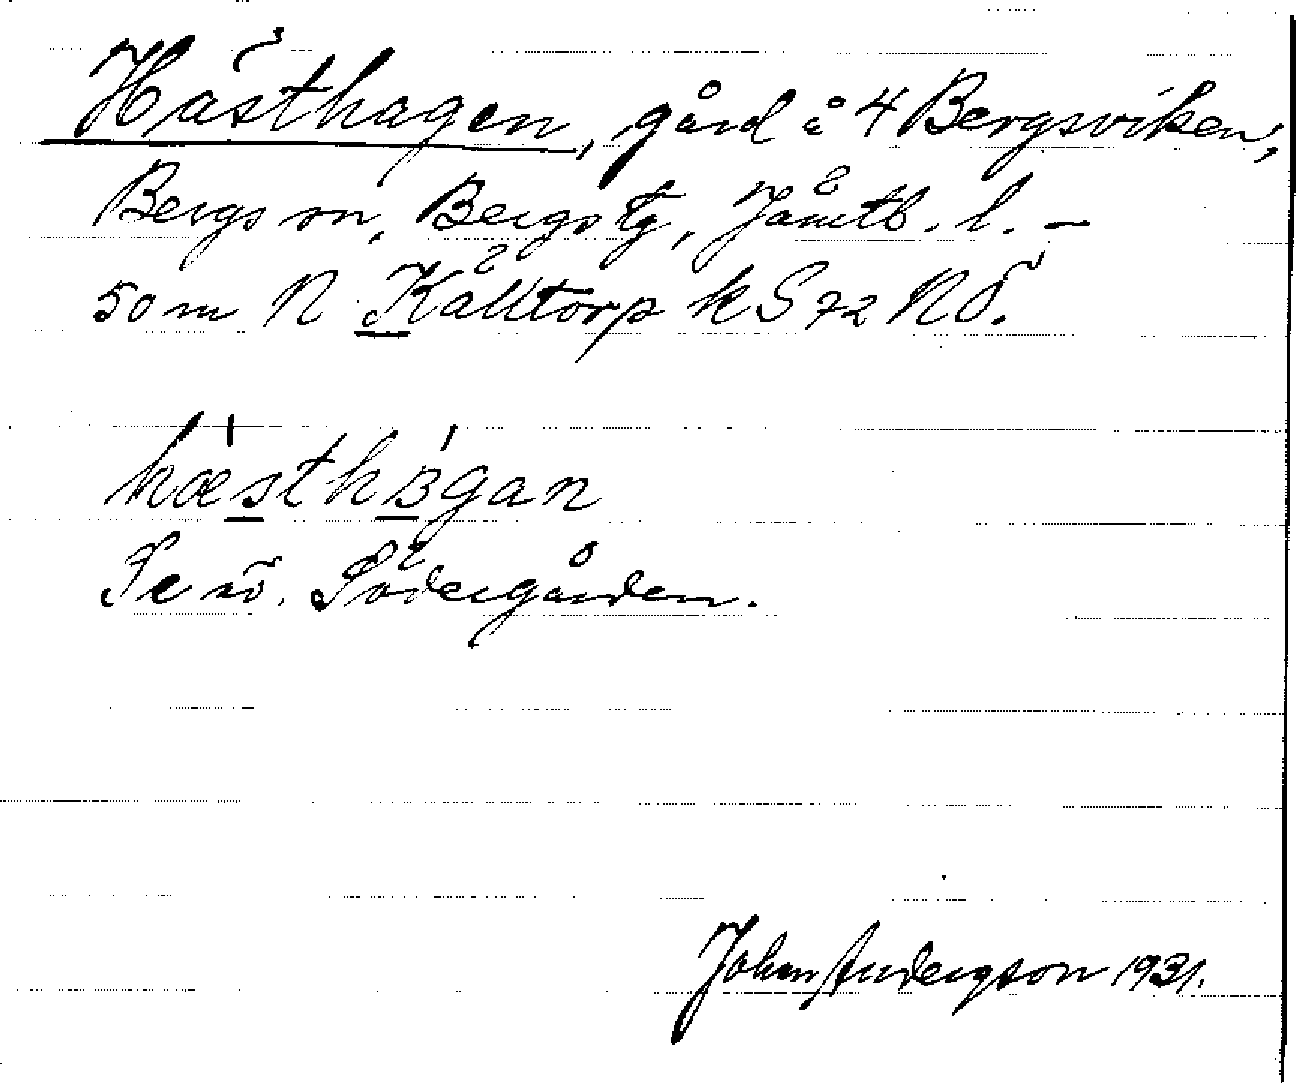 Hästhagen, gård å 4 Bergsviken,
Bergs sn, Bergs tg, Jämtl. l. –
50 m N Källtorp k S 72 NÖ.
hæsthɜgan
Se nö. Södergården.
Johan Anderson 1931.